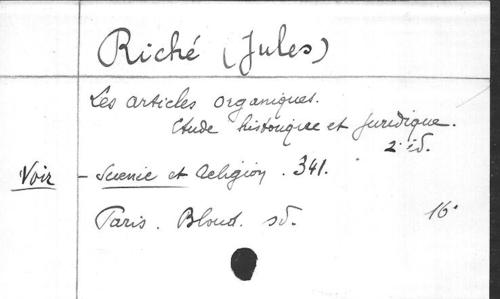 Riché (Jules)
Les articles organiques.
Etude historique et juridique.
2e éd.
Voir - Science et Religion. 341.
Paris. Bloud. sd. 16°